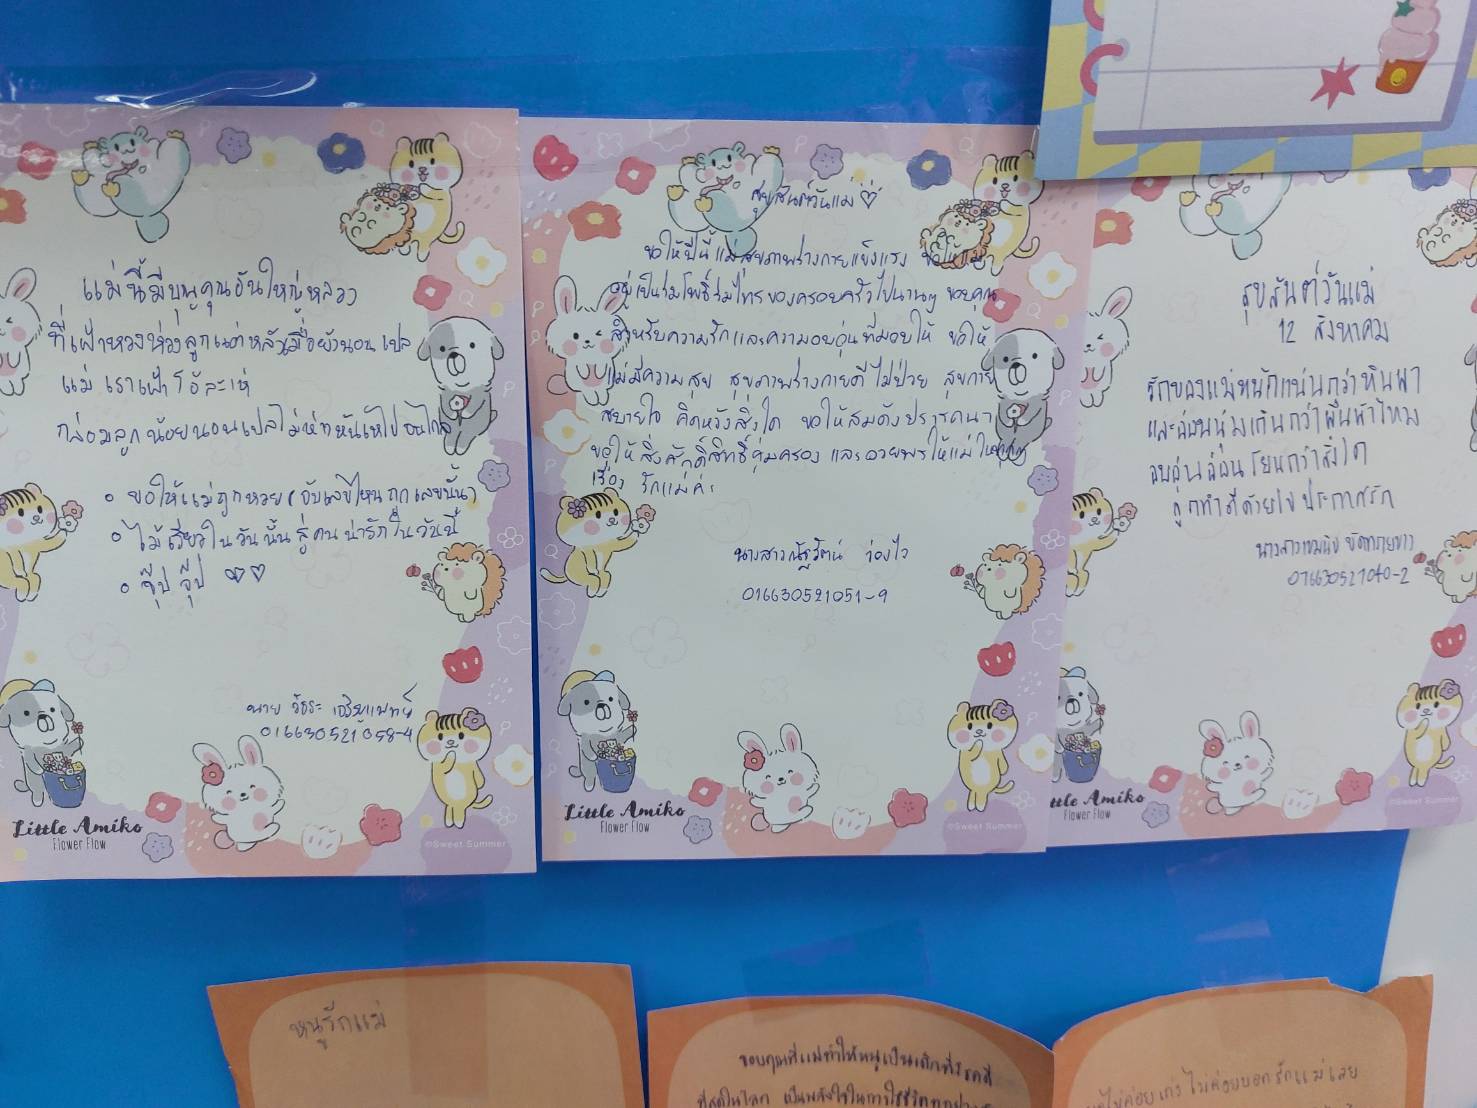 แม่นี้มีบุญคุณอันใหญ่หลวง
ที่เฝ้าหวงห่วงลูกแต่หลังเมื่อยังนอนเปล
แม่เราเฝ้าโอ้ละเห่
กล่อมลูกน้อยนอนเปลไม่ห่างหันเหไปจนไกล
ขอให้แม่ถูกหวย (จับเลขไหนถูกเลขนั้น)
ไม้เรียวในวันนั้นสู่คนน่ารักในวันนี้
จุ๊ป จุ๊ป ♡♡
นาย
016630521058-4
Little Amiko
Flower Flow
©Sweet Summer
สุขสันต์วันแม่ ♡
ขอให้ปีนี้แม่สุขภาพร่างกายแข็งแรง ขอให้แม่
อยู่เป็นร่มโพธิ์ร่มไทรของครอบครัวไปนานๆ ขอบคุณ
สำหรับความรักและความอบอุ่นที่มอบให้ ขอให้
แม่มีความสุข สุขภาพร่างกายดี ไม่ป่วย สุขกาย
สบายใจ คิดหวังสิ่งใด ขอให้สมดังปรารถนา
ขอให้สิ่งศักดิ์สิทธิ์คุ้มครอง และอวยพรให้แม่ในทุกๆ
เรื่อง รักแม่ค่ะ
นางสาวณัฐวัตน์ ว่องไว
016630521051-9
Little Amiko
Flower Flow
©Sweet Summer
สุขสันต์วันแม่
12 สิงหาคม
รักของแม่หนักแน่นกว่าหินผา
และอ่อนนุ่มเกินกว่าผืนผ้าไหม
อบอุ่นอ่อนโยนกว่าสิ่งใด
ลูกทำดีด้วยใจประกาศรัก
นางสาว
016630521040-2
Little Amiko
Flower Flow
©Sweet Summer
หนูรักแม่
ขอบคุณที่แม่ทำให้หนูเป็นเด็กที่โชคดี
ที่สุดในโลก เป็นพลังใจในการใช้ชีวิต
ไม่ค่อยเก่ง ไม่ค่อยบอกรักแม่เลย